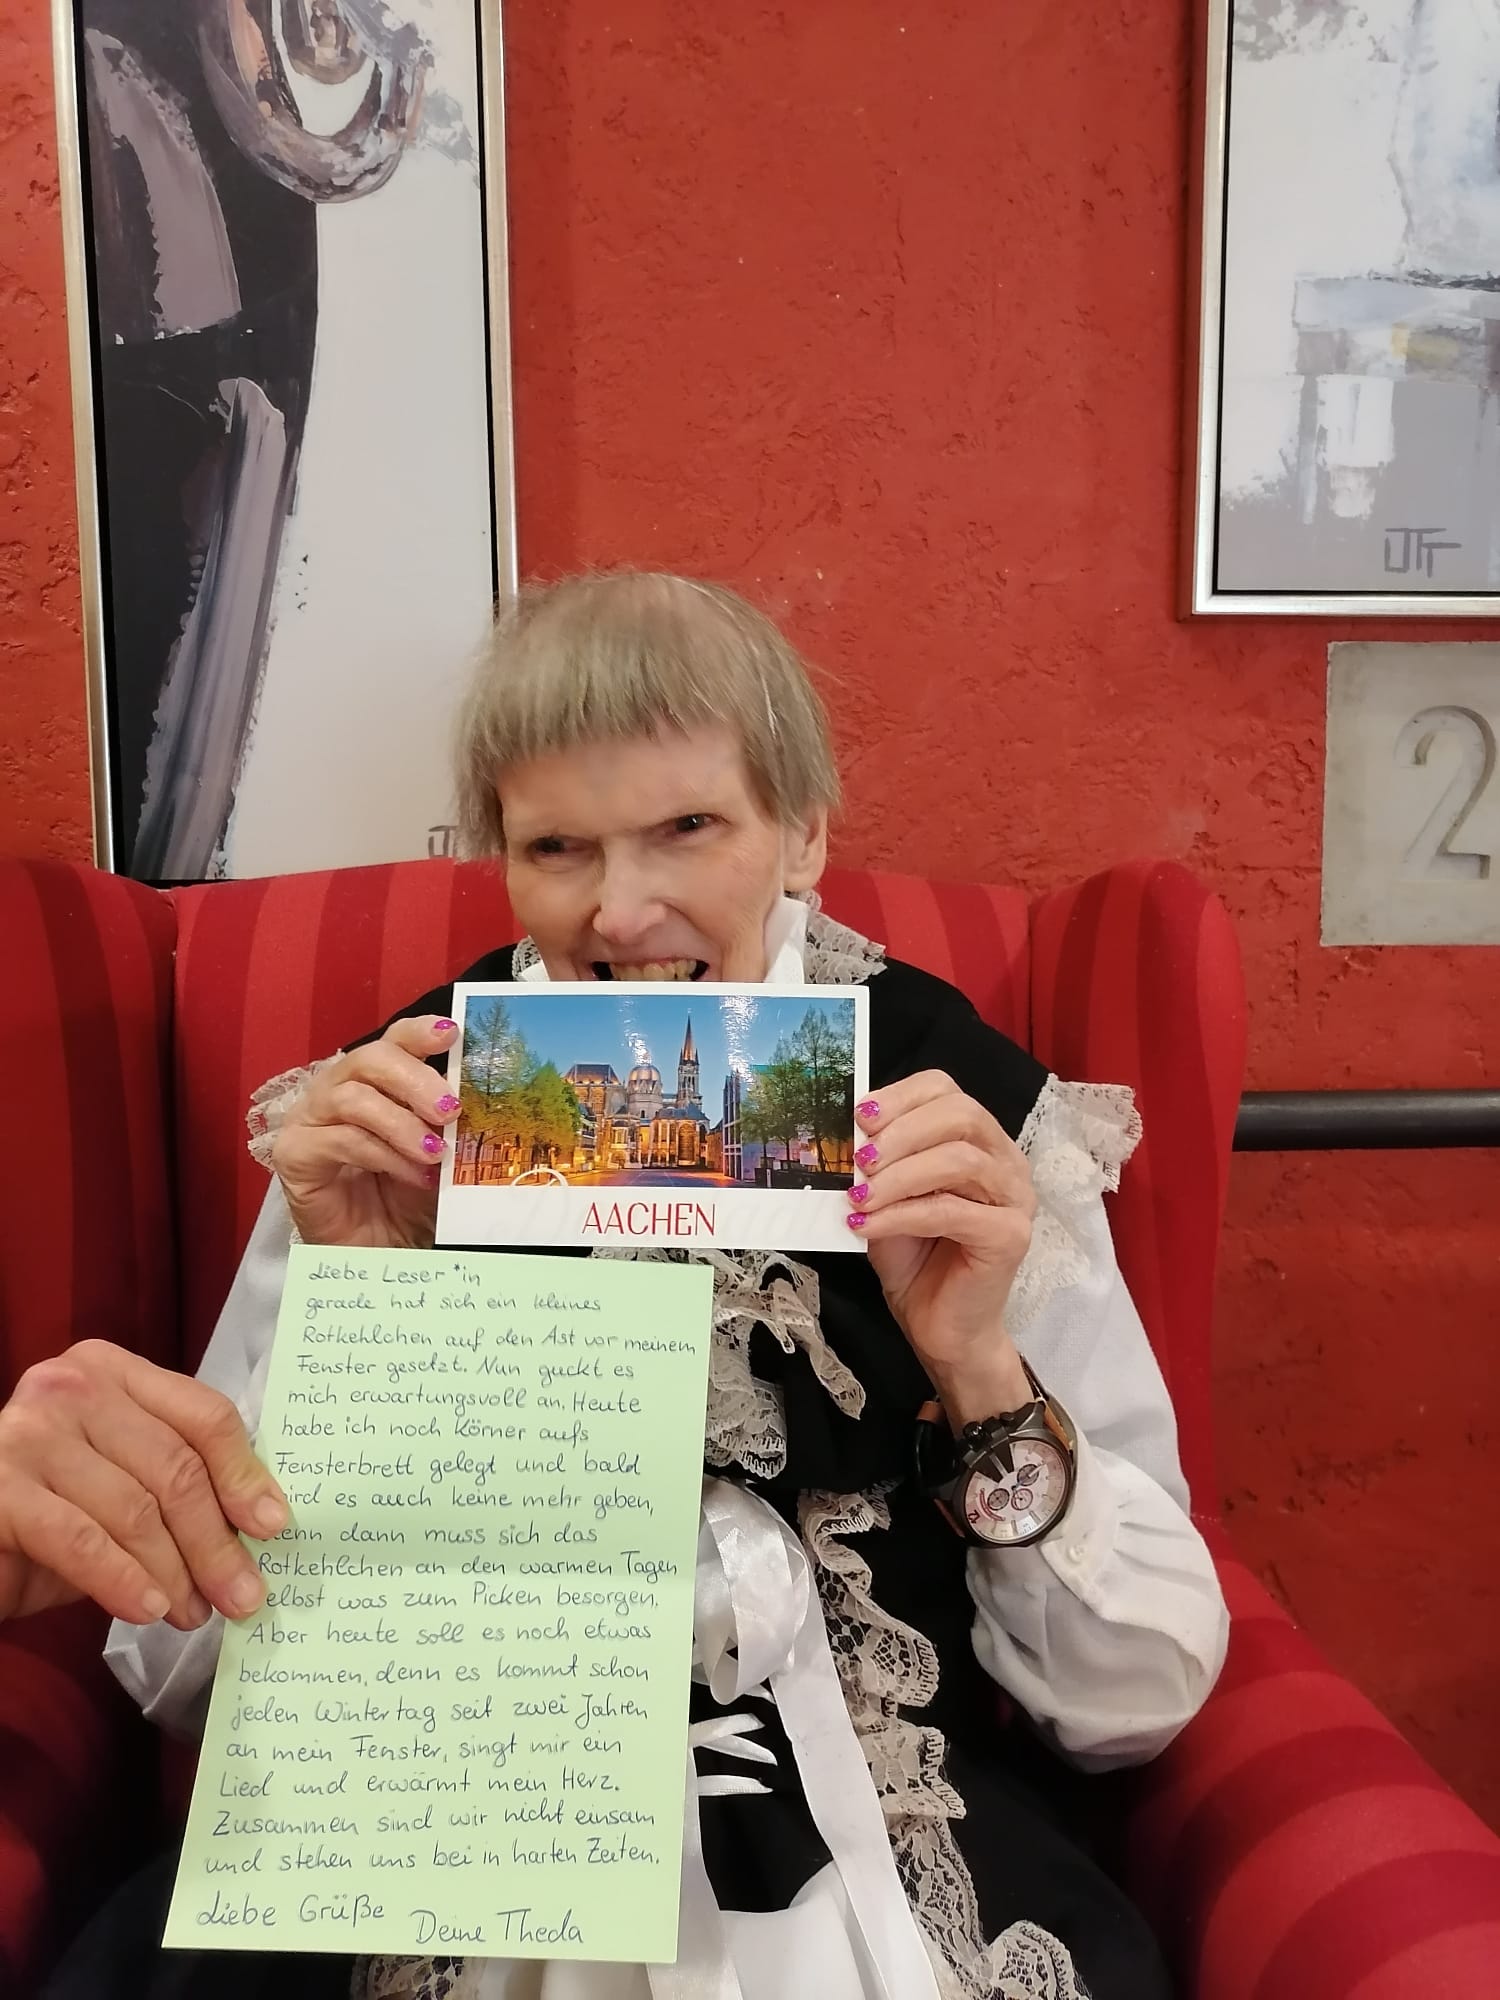 JTT
JT
2
AACHEN
Liebe Leser*in
gerade hat sich ein kleines
Rotkehlchen auf den Ast vor meinem
Fenster gesetzt. Nun guckt es
mich erwartungsvoll an. Heute
habe ich noch Körner aufs
Fensterbrett gelegt und bald
ird es auch keine mehr geben,
enn dann muss sich das
Rotkehlchen an den warmen Tagen
elbst was zum Picken besorgen.
Aber heute soll es noch etwas
bekommen, denn es kommt schon
jeden Wintertag seit zwei Jahren
an mein Fenster, singt mir ein
Lied und erwärmt mein Herz.
Zusammen sind wir nicht einsam
und stehen uns bei in harten Zeiten.
Liebe Grüße
Deine Theda
12